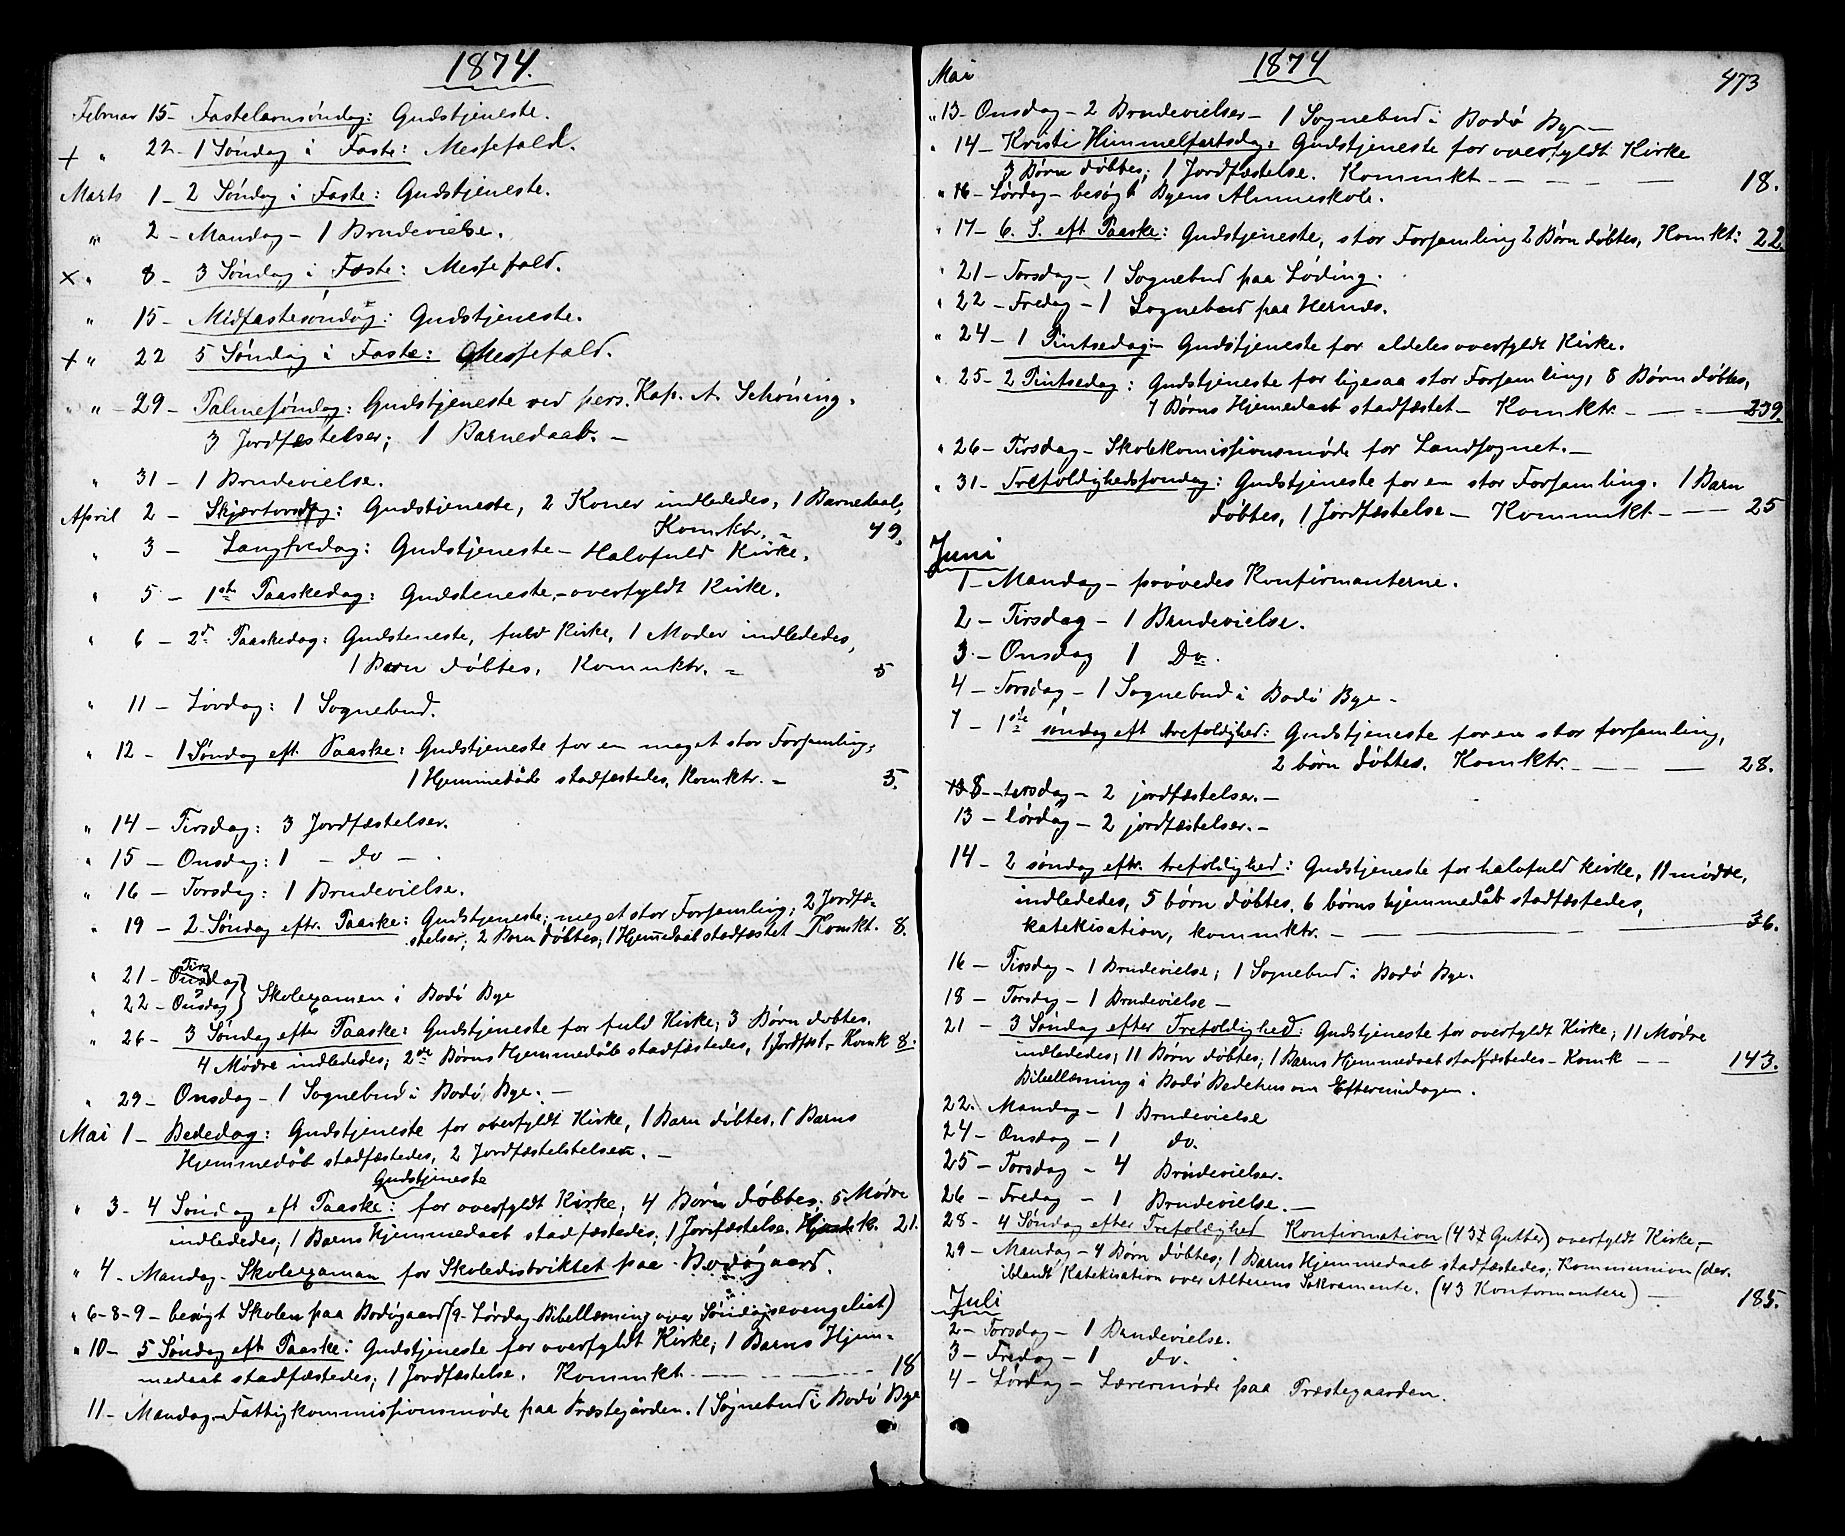 1874.
Februar 15 - Fastelavnssøndag: Gudstjeneste.
+ " 22 - 1 Søndag i Faste: Messefald.
Marts 1 - 2 Søndag i Faste: Gudstjeneste.
" 2 - Mandag - 1 Brudevielse.
× " 8 - 3 Søndag i Faste: Messefald.
" 15 - Midfastesøndag: Gudstjeneste.
+ " 22 5 Søndag i Faste: Messefald.
" - 29 - Palmesøndag: Gudstjeneste ved pers. Kap. A. Schøning.
3 Jordfæstelser; 1 Barnedaab. -
" 31 - 1 Brudevielse.
April 2 - Skjærtorsdag: Gudstjeneste, 2 Koner indlededes, 1 Barnedaab,
Komktr. - 49.
" 3 - Langfredag: Gudstjeneste - Halvfuld Kirke.
" 5 - 1ste Paaskedag: Gudsteneste, - overfyldt Kirke.
" 6 - 2d. Paaskedag: Gudsteneste, fuld Kirke, 1 Moder indlededes,
1 Barn døbtes. Komnktr. - 5
" 11 - Lørdag: 1 Sognebud.
" 12 - 1 Søndag eft. Paaske: Gudstjeneste for en meget stor Forsamling;
1 Hjemmedåb stadfæstedes, Komktr. - 5.
" 14 - Tirsdag: 3 Jordfæstelser.
" 15 - Onsdag: 1 - do - .
" 16 - Torsdag: 1 Brudevielse.
" 19 - 2. Søndag eftr. Paaske: Gudstjeneste; meget stor Forsamling; 2 Jordfæ-
stelser; 2 Børn døbtes; 1 Hjemmedaab stadfæstet - Komkt. 8.
" 21 - Tirsdag
" 22 - Onsdag } Skolexamen i Bodø Bye
" 26 - 3 Søndag efter Paaske: Gudstjeneste for fuld Kirke; 3 Børn døbtes.
4 Mødre indlededes; 2de Børns Hjemmedåb stadfæstedes, 1 Jordfæst - Komk 8.
" 29 - Onsdag - 1 Sognebud i Bodø Bye. -
Mai 1 - Bededag: Gudstjeneste for overfyldt Kirke, 1 Barn døbtes. 1 Barns
Hjemmedåb stadfæstedes, 2 Jordfæstelstelser. -
Gudstjeneste
" 3 - 4 Søndag eft Paaske: for overfyldt Kirke; 4 Børn døbtes; 5 Mødre
indlededes; 1 Barns Hjemmedaab stadfæstedes; 1 Jordfæstelse. k. 21.
" 4 - Mandag - Skolexaman for Skoledistriktet paa Bodøgaard.
" 6-8-9 - besøgt Skolen paa Bodøgaard (9 - Lørdag Bibellæsning over Søndagsevangeliet)
" 10 - 5 Søndag eft Paaske: Gudstjeneste for overfyldt Kirke; 1 Barns Hjem-
medaab stadfæstedes; 1 Jordfæstelse. Kommkt - - - - 18
11 - Mandag - Fattigkommissionsmøde paa Præstegården. 1 Sognebud i Bodø Bye
1874
473
Mai
" 13 - Onsdag - 2 Brudevielser - 1 Sognebud i Bodø Bye -
" 14 - Kristi Himmelfartsdag: Gudstjeneste for overfyldt Kirke
3 Børn døbtes; 1 Jordfæstelse. Kommkt - - - - 18.
" 16 - Lørdag - besøgt Byens Almueskole.
" 17 - 6. S. eft Paaske: Gudstjeneste, stor Forsamling 2 Børn døbtes, Komkt: 22
" 21 - Torsdag - 1 Sognebud paa Løding.
" 22 - Fredag - 1 Sognebud paa Hernæs.
" 24 - 1 Pintsedag - Gudstjeneste for aldeles overfyldt Kirke.
" 25 - 2 Pintsedag: Gudstjeneste for ligesaa stor Forsamling, 8 Børn døbtes,
7 Børns Hjemmedaab stadfæstet - Komktr. - - - 239
" 26 - Tirsdag - Skolekomissionsmøde for Landsognet. -
" 31 - Trefoldighedssøndag: Gudstjeneste for en stor Forsamling. 1 Barn
døbtes, 1 Jordfæstelse - Kommkt - - - 25
Juni
1 - Mandag - prøvedes Konfirmanterne.
2 - Tirsdag - 1 Brudevielse.
3. - Onsdag 1 Do.
4 - Torsdag - 1 Sognebud i Bodø Bye -
7 - 1ste søndag eft trefoldighed: Gudstjeneste for en stor forsamling,
2 børn døbtes. Komktr. - - - 28.
8 - torsdag - 2 jordfæstelser. -
13 - lørdag - 2 jordfæstelser. -
14 - 2 søndag eftr. trefoldighed: Gudstjeneste for halvfuld kirke, 11 mødre,
indlededes, 5 børn døbtes, 6 børns hjemmedåb stadfæstedes,
katekisation, kommktr. - - - 36.
16 - Tirsdag - 1 Brudevielse; 1 Sognebud i Bodø Bye.
18 - Torsdag - 1 Brudevielse -
21 - 3 Søndag efter Trefoldighed: Gudstjeneste for overfyldt Kirke; 11 Mødre
indlededes; 11 Børn døbtes; 1 Barns Hjemmedaab stadfæstedes - Komk - - 143.
Bibellæsning i Bodø Bedehus om Eftermidagen.
22. Mandag - 1 Brudevielse
24 - Onsdag - 1 do.
25 - Torsdag - 4 Brudevielser.
26 - Fredag - 1 Brudevielse. -
28 - 4 Søndag efter Trefoldighed Konfirmation (43 Gutter) overfyldt Kirke, -
29 - Mandag - 4 Børn døbtes; 1 Barns Hjemmedaab stadfæstedes; Kommunion (der-
iblandt Katekisation over Alterens Sakramente. (43 Konformantere) - 185.
Juli
2 - Torsdag - 1 Brudevielse.
3 - Fredag - 1 do.
4 - Lørdag - Lærermøde paa Præstegaarden.